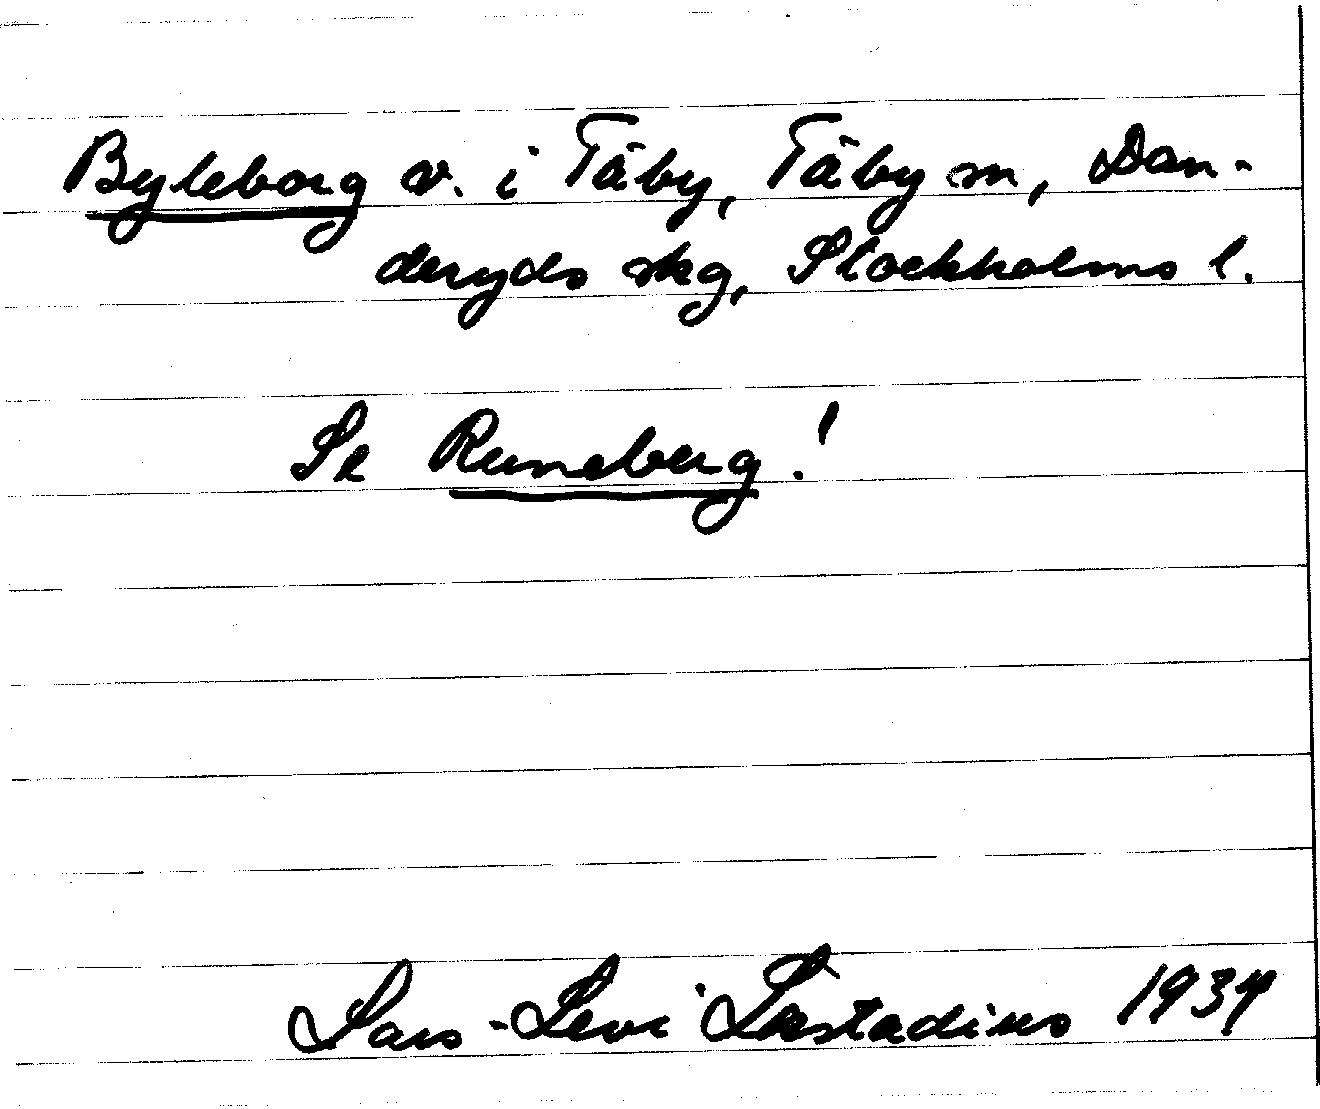 Byleborg v. i Täby, Täby sn, Dan-
deryds skg, Stockholms l.
Se Runeberg!
Lars-Levi Læstadius 1934